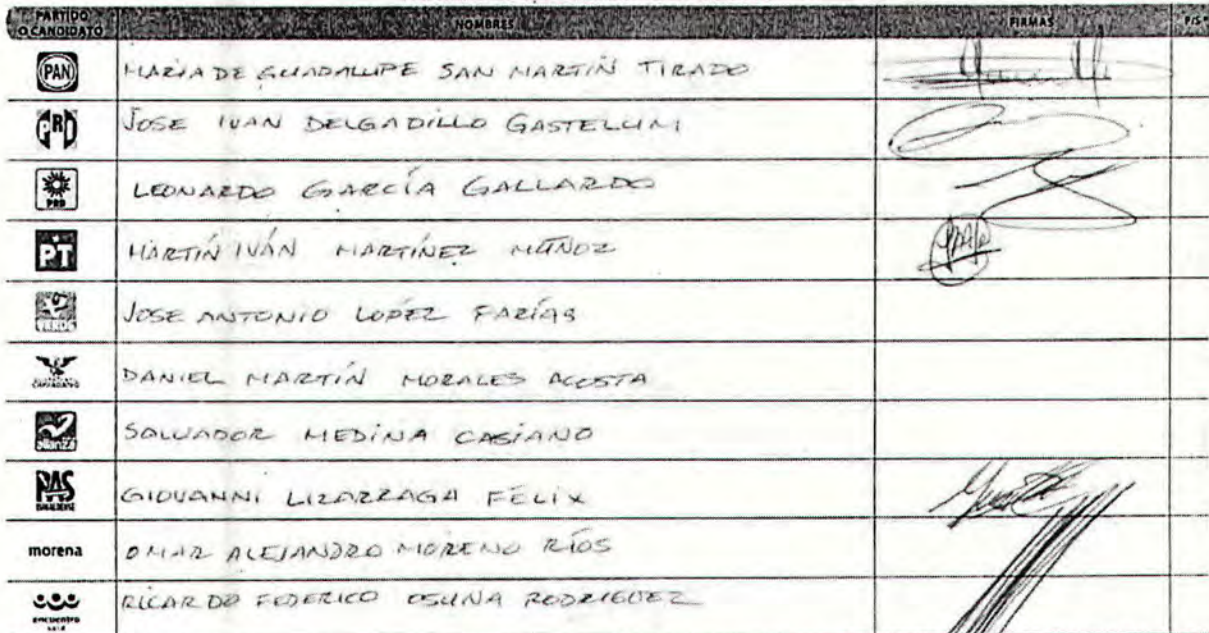 PARTIDO O CANDIDATO NOMBRES FIRMAS P/S*
PAN MARIA DE GUADALUPE SAN MARTÍN TIRADO
PRI JOSE IVAN DELGADILLO GASTELUM
PRD LEONARDO GARCÍA GALLARDO
PT MARTÍN IVÁN MARTÍNEZ MUÑOZ
VERDE JOSE ANTONIO LOPEZ FARÍAS
DANIEL MARTÍN MORALES ACOSTA
alianza SALVADOR MEDINA CASIANO
PAS SINALOENSE GIOVANNI LIZARRAGA FELIX
morena OMAR ALEJANDRO MORENO RÍOS
encuentro social RICARDO FEDERICO OSUNA RODRIGUEZ